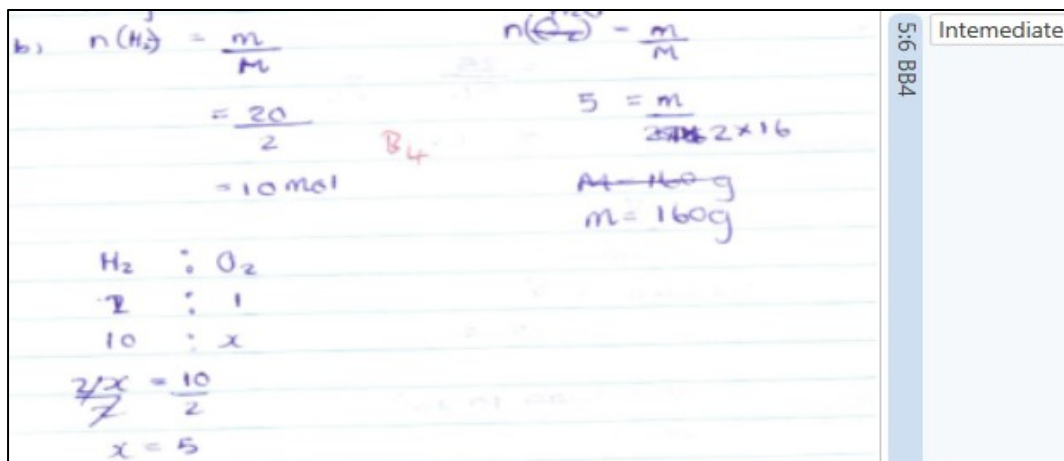 b) n(H₂) = m/M
= 20/2
= 10 mol
B4
H₂ : O₂
2 : 1
10 : x
2x/2 = 10/2
x = 5
n(O₂) = m/M
5 = m/2×16
M = 160 g
m = 160g
5:6 BB4
Intemediate